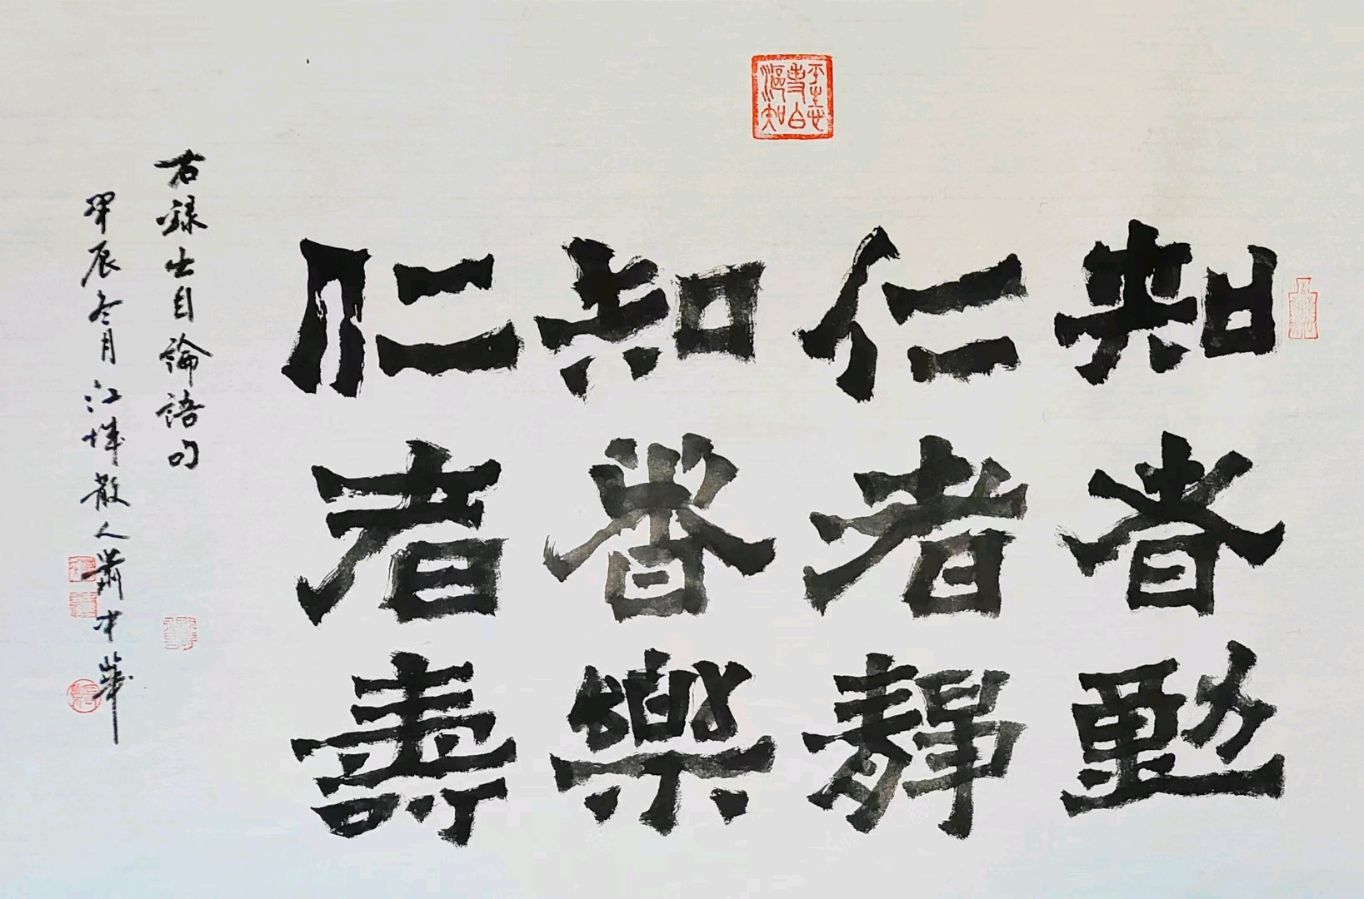 知者動
仁者靜
知者樂
仁者壽
右錄出自論語句
甲辰冬月江城散人蕭中華